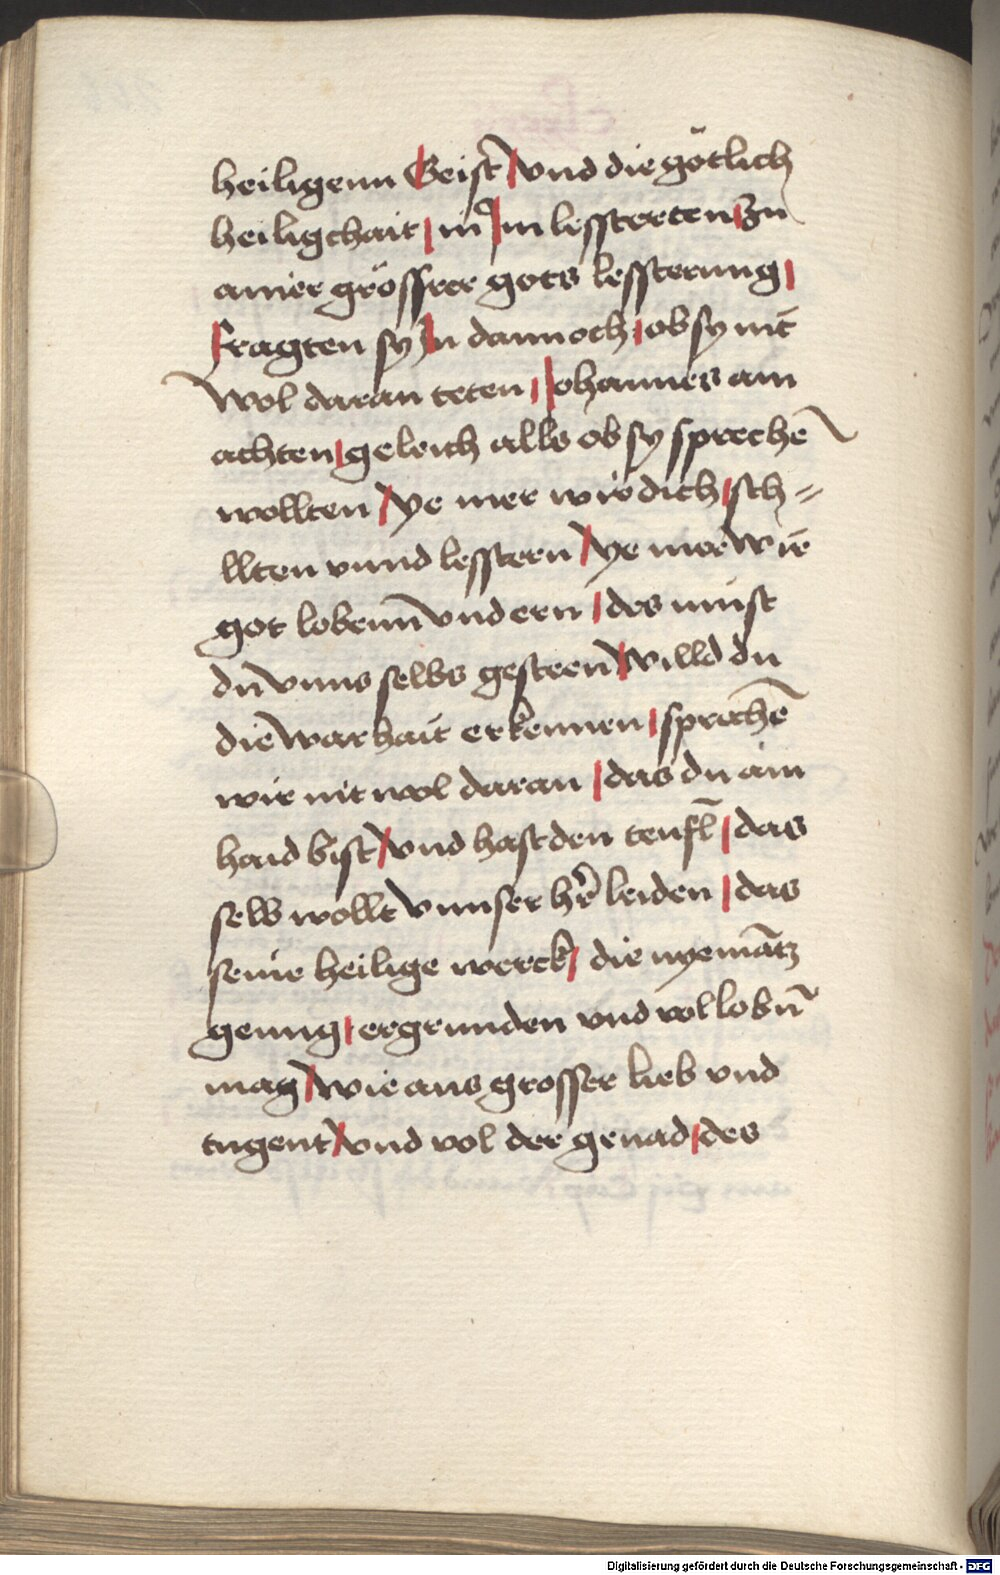 heiligenn Geist vnd die götlich
heiligchait in Im lessterten Zu
ainer grössrer gots lessterung
fragten sy In dannoch ob sy nit
wol daran teten Johannes am
achten geleich alls ob sy sprechē
wollten ye mer wir dich sch=
llten vnnd lesstern ye mer wir
got lobenn vnd ern des must
du vnns selbs gesteen willd du
die warhait erkennen sprechē
wir nit wol daran das du ain
haid bist vnd hast den teufl das
selb wollt vnnser hr̄ leiden das
seine heilige werck die nyemātz
genug ergrunden vnd vol lobn̄
mag wie aus grosser lieb vnd
tugent vnd vol der genad des
Digitalisierung gefördert durch die Deutsche Forschungsgemeinschaft - DFG